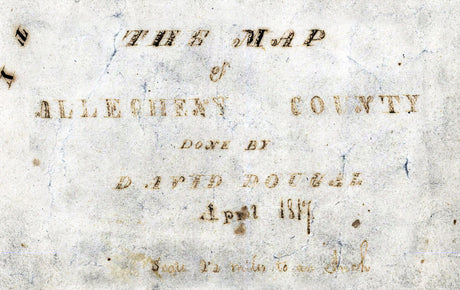 THE MAP
of
ALLEGHENY COUNTY
DONE BY
DAVID DOUGAL
April 1817
miles to an Inch